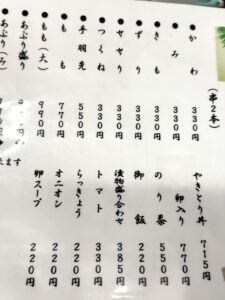 (串2本)
・かわ 330円
・かみ 330円
・きも 330円
・ずり 330円
・セセリ 330円
・つくね 330円
・手羽先
・もも 770円
・もも(大) 990円
・あぶり盛り
・あぶり(み
やきとり丼 715円
卵入り 770円
のり茶 550円
御飯 220円
漬物盛り合わせ 385円
トマト 330円
らっきょう 220円
オニオン 220円
卵スープ 220円
来ます